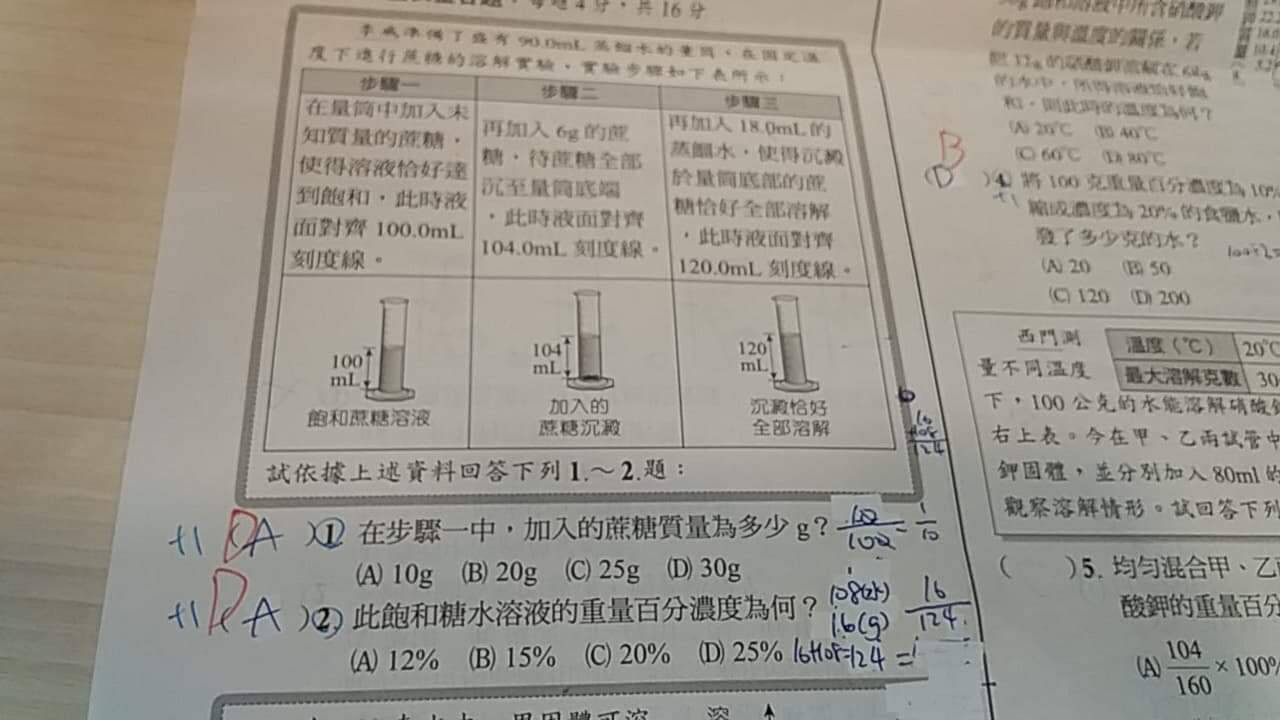 每題4分，共16分
李威準備了盛有 90.0mL 蒸餾水的量筒，在固定溫
度下進行蔗糖的溶解實驗，實驗步驟如下表所示：
步驟一
在量筒中加入未
知質量的蔗糖，
使得溶液恰好達
到飽和，此時液
面對齊 100.0mL
刻度線。
步驟二
再加入 6g 的蔗
糖，待蔗糖全部
沉至量筒底端
，此時液面對齊
104.0mL 刻度線。
步驟三
再加入 18.0mL 的
蒸餾水，使得沉澱
於量筒底部的蔗
糖恰好全部溶解
，此時液面對齊
120.0mL 刻度線。
100
mL
飽和蔗糖溶液
104
mL
加入的
蔗糖沉澱
120
mL
沉澱恰好
全部溶解
試依據上述資料回答下列 1.～2.題：
+1 D A )1. 在步驟一中，加入的蔗糖質量為多少 g？ 10/100 = 1/10
(A) 10g (B) 20g (C) 25g (D) 30g
+1 A )2. 此飽和糖水溶液的重量百分濃度為何？
108(水) 16/124
16(g)
(A) 12% (B) 15% (C) 20% (D) 25% 16+108=124 =
16
+108
124
所含硝酸鉀
的質量與溫度的關係，若
和，則此時的溫度為何？
(A) 20℃ (B) 40℃
(C) 60℃ (D) 80℃
B
(D )4. 將 100 克重量百分濃度為 10%
+1
縮成濃度為 20% 的食鹽水，
發了多少克的水？
(A) 20 (B) 50
(C) 120 (D) 200
西門測
量不同溫度
溫度（℃） 20℃
最大溶解克數 30
下，100 公克的水能溶解硝酸
右上表。今在甲、乙兩試管中
鉀固體，並分別加入 80ml 的
觀察溶解情形。試回答下列
( )5. 均勻混合甲、乙
酸鉀的重量百分
(A) 104/160 × 100%